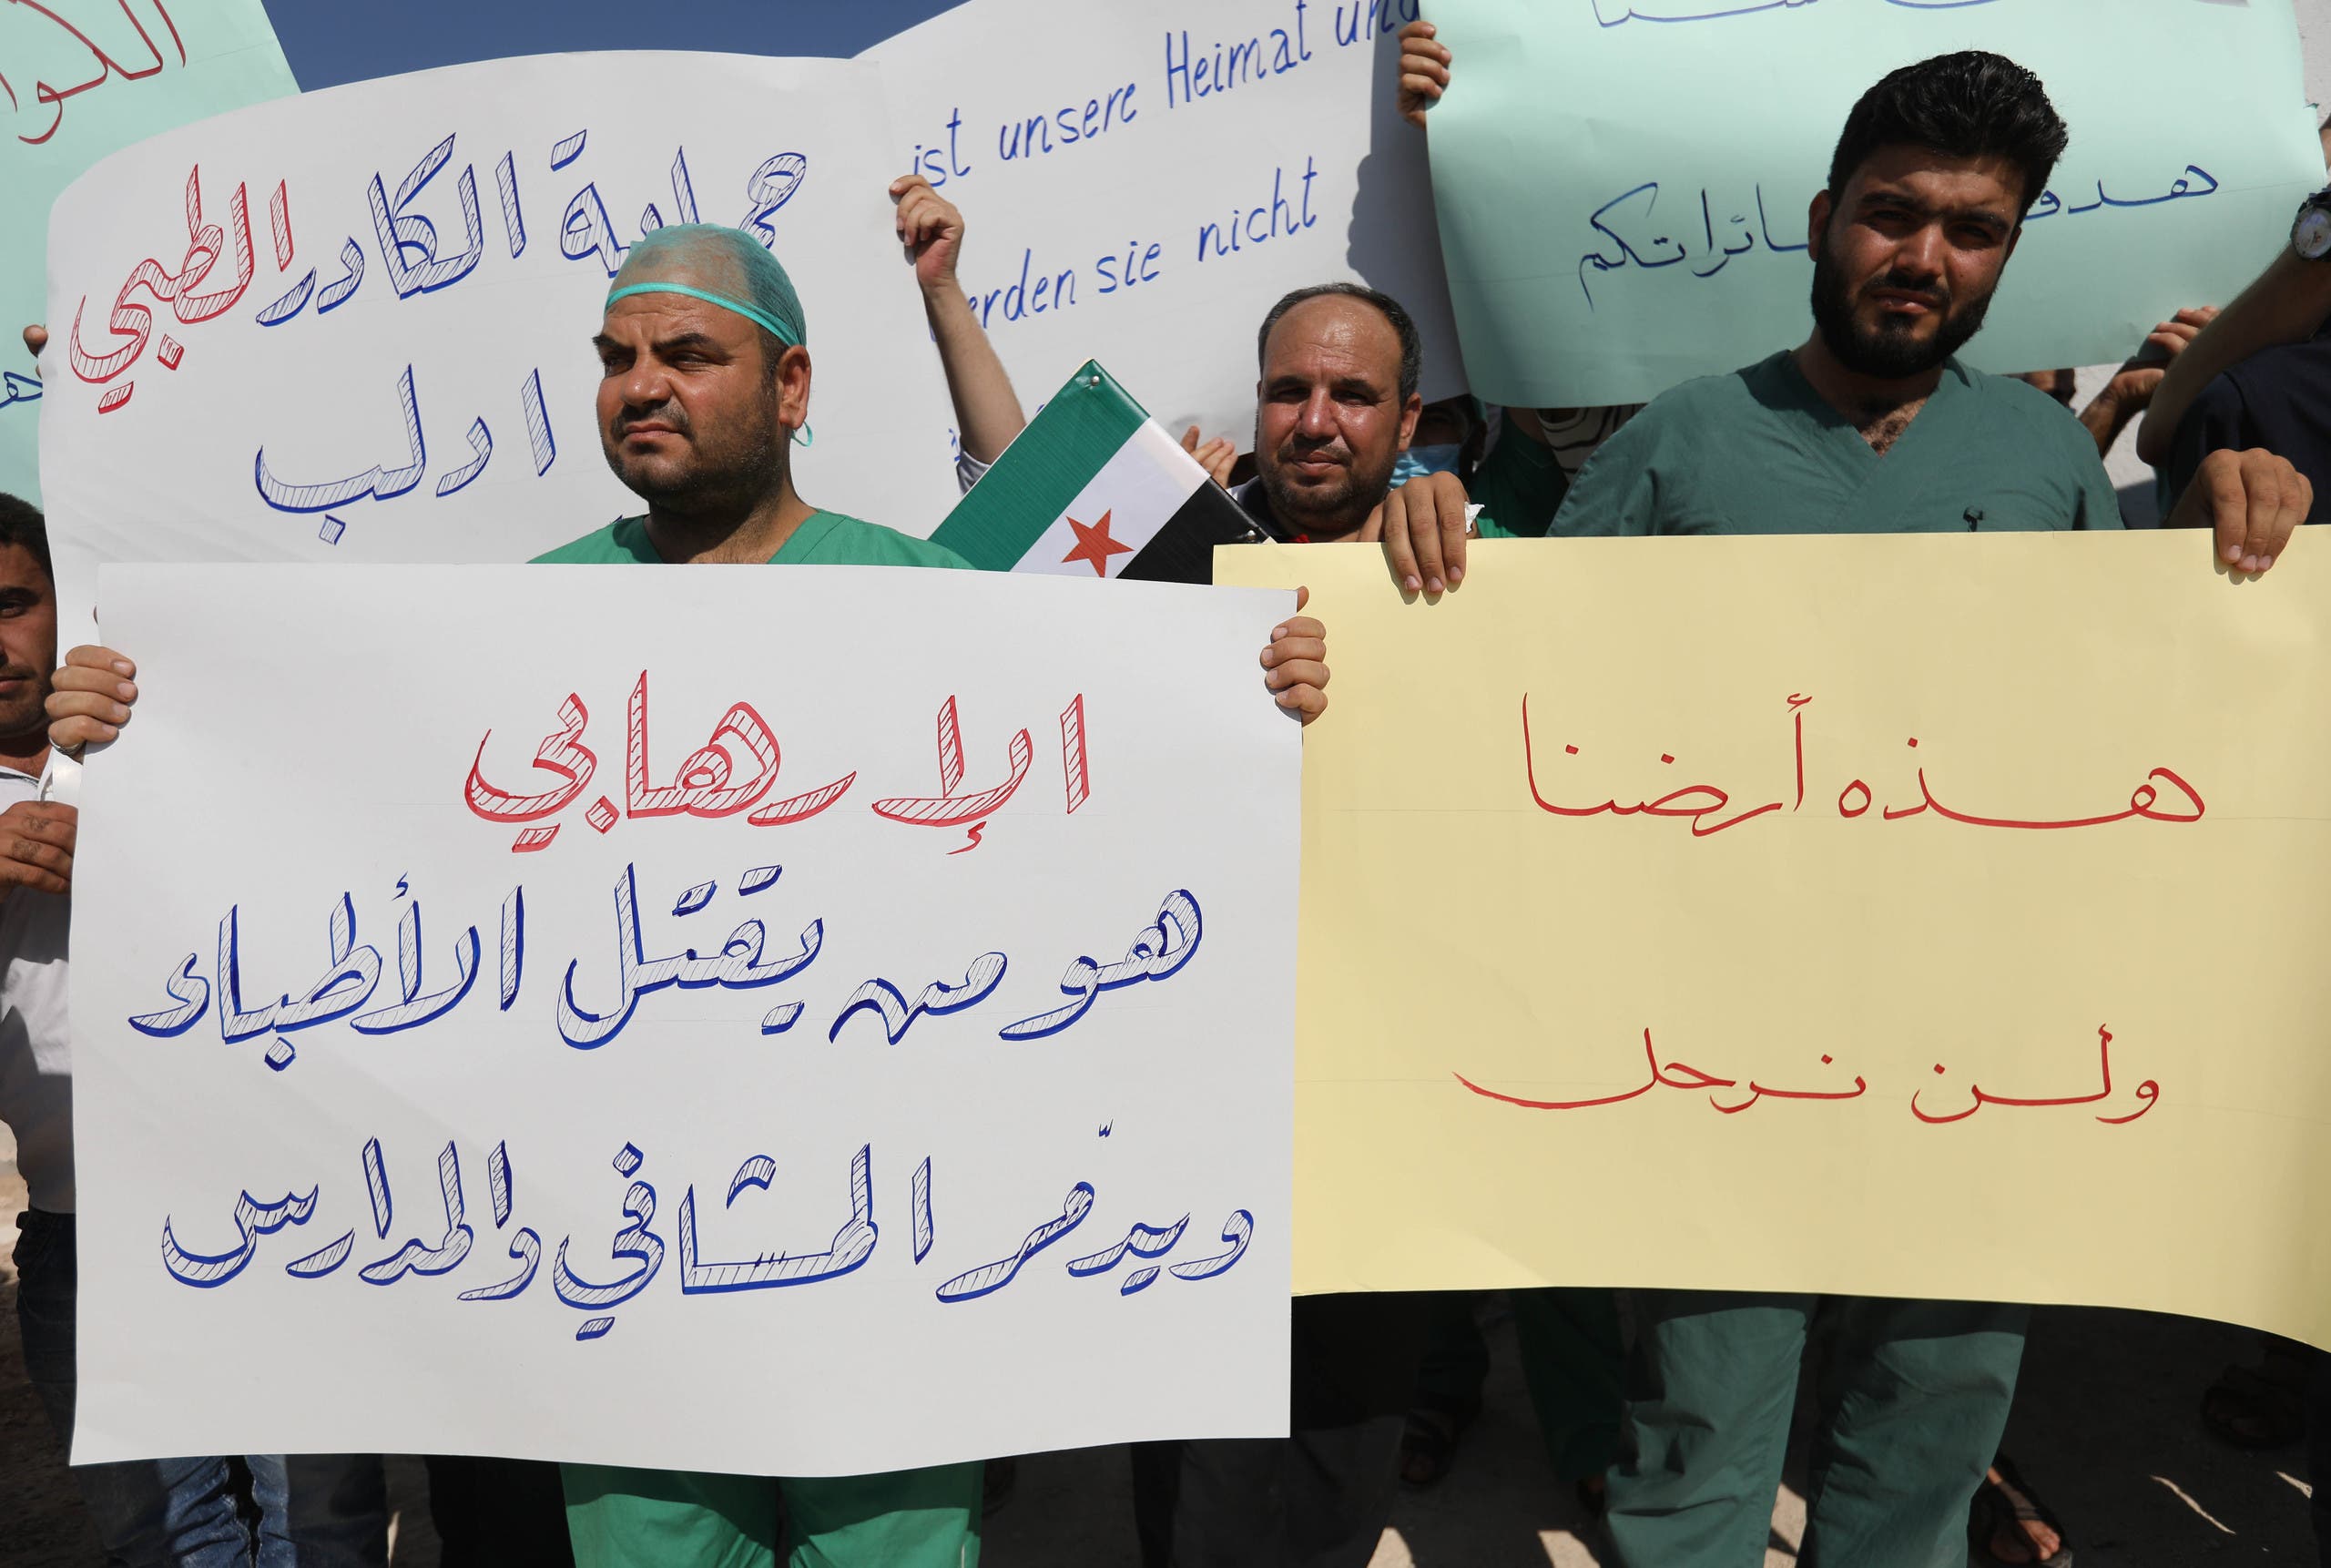 حماية الكادر الطبي
ادلب
ist unsere Heimat und
werden sie nicht
طائراتكم
الإرهابي
هو من يقتل الأطباء
ويدّمر المشافي والمدارس
هذه أرضنا
ولن نرحل